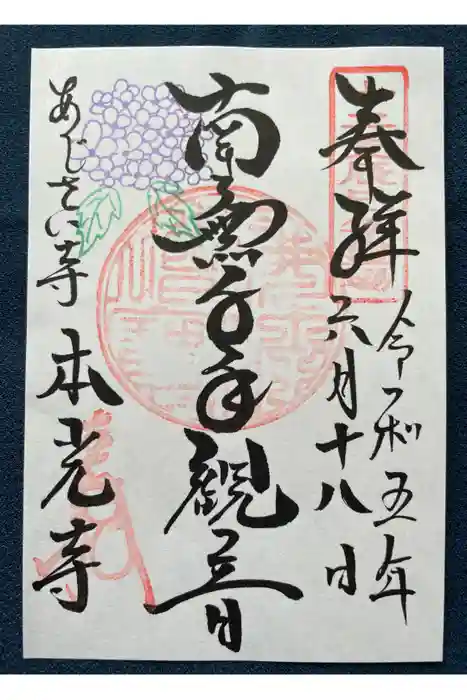 奉拝
令和五年
六月十八日
南無千手観音
あじさい寺
本光寺